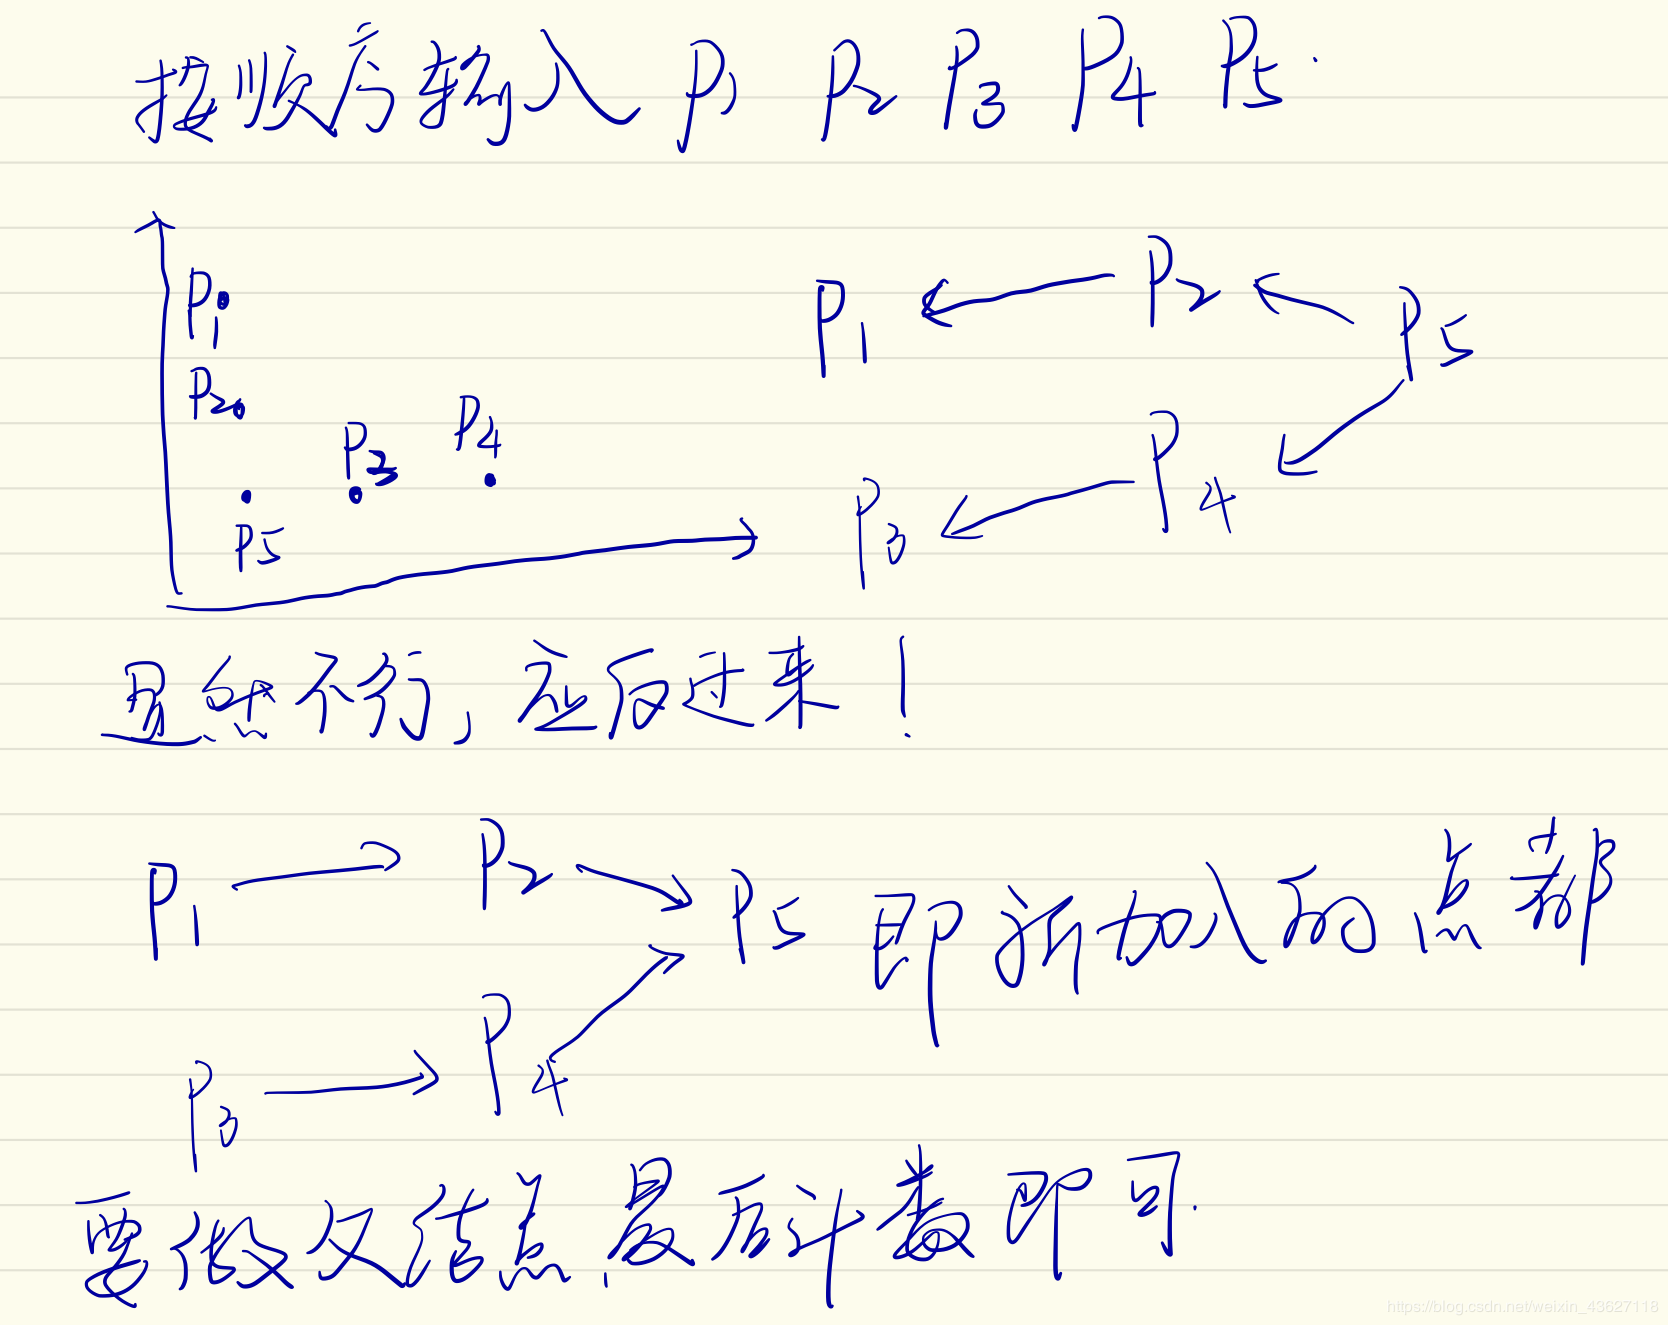 按顺序输入 P1 P2 P3 P4 P5.
P1
P2
P3
P4
P5
P1 P2 P5
P3 P4
显然不行,应反过来!
P1 P2 P5 即新加入的点都
P3 P4
要做父结点,最后计数即可.
https://blog.csdn.net/weixin_43627118